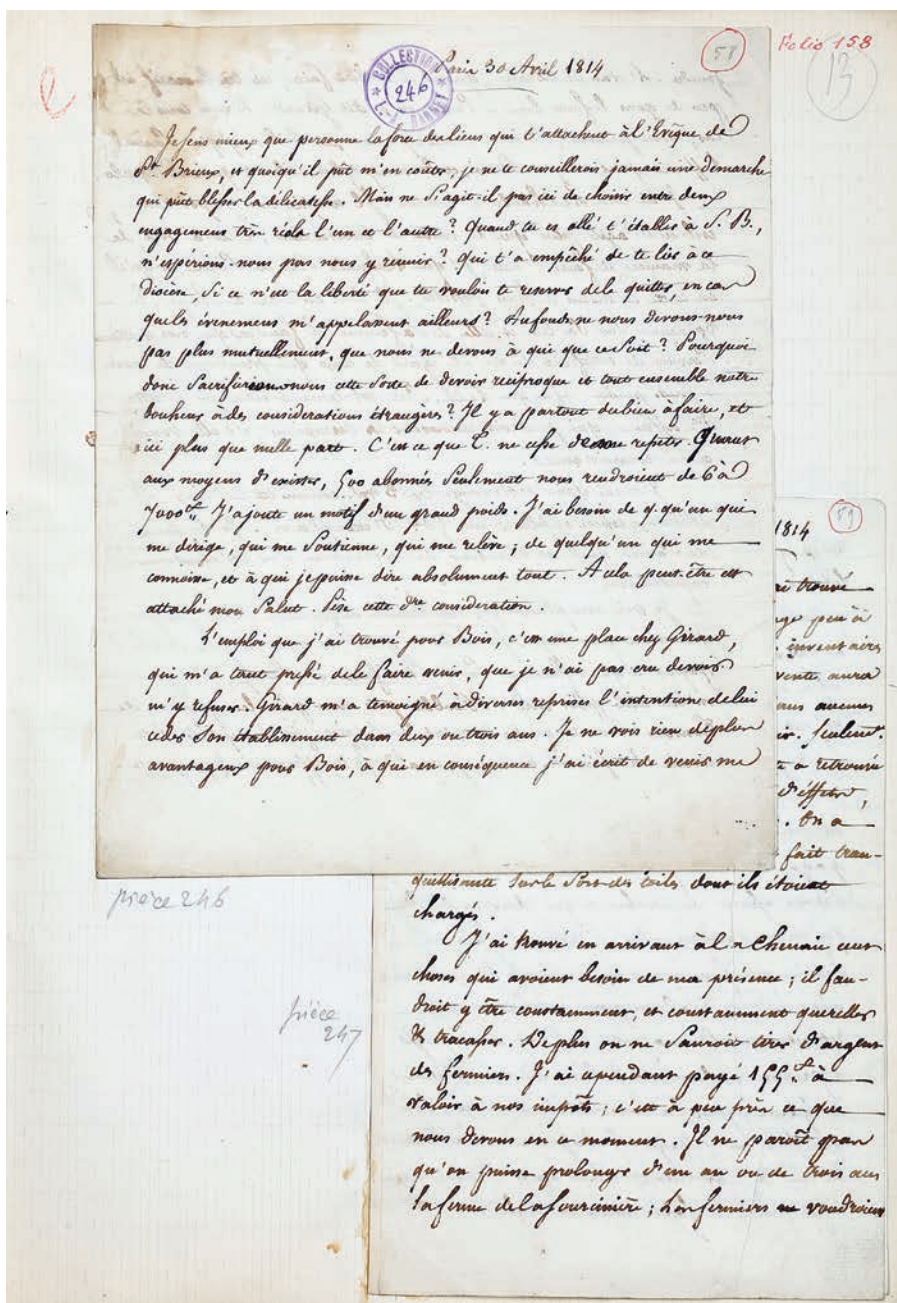 Folio 158
58
13
COLLECTION
246
Paris 30 Avril 1814
Je sens mieux que personne la force des liens qui t'attachent à l'Evêque de
St Brieux, et quoiqu'il pût m'en coûter, je ne te conseillerois jamais une demarche
qui pût blesser la délicatesse. Mais ne s'agit-il pas ici de choisir entre deux
engagemens très réels l'un et l'autre ? Quand tu es allé t'établir à S. B.,
n'espérions-nous pas nous y réunir ? Qui t'a empêché de te lier à ce
diocèse, si ce n'est la liberté que tu voulois te reserver de le quitter, en cas
que les évènemens m'appelassent ailleurs ? Au fonds ne nous devons-nous
pas plus mutuellement, que nous ne devons à qui que ce soit ? Pourquoi
donc sacrifierions-nous cette sorte de devoir reciproque et tout ensemble notre
bonheur à des considerations étrangères ? Il y a partout du bien à faire, et
ici plus que nulle part. C'est ce que T. ne cesse de me repeter. Quant
aux moyens d'exister, 500 abonnés seulement nous rendroient de 6 à
7000 tt. J'ajoute un motif d'un grand poids. J'ai besoin de q.qu'un qui
me dirige, qui me soutienne, qui me relève ; de quelqu'un qui me
connoisse, et à qui je puisse dire absolument tout. A cela peut-être est
attaché mon salut. Pèse cette dre consideration.
L'emploi que j'ai trouvé pour Bois, c'est une place chez Girard,
qui m'a tant pressé de le faire venir, que je n'ai pas cru devoir
m'y refuser. Girard m'a temoigné à diverses reprises l'intention de lui
ceder son établissement dans deux ou trois ans. Je ne vois rien de plus
avantageux pour Bois, à qui en conséquence j'ai écrit de venir me
pièce 246
pièce
247
59
1814
trouvé
peu à
inventaire
vente aura
aucuns
Seulemt.
a retrouvé
d'effets,
On a
fait tran-
quillisante sur le sort des toiles dont ils étoient
chargés.
J'ai trouvé en arrivant à la Chenaie cent
choses qui avoient besoin de ma présence ; il fau-
droit y être constamment, et constamment quereller
& tracasser. De plus on ne sauroit tirer d'argent
des fermiers. J'ai cependant payé 155 tt à
valoir à nos impôts ; c'est à peu près ce que
nous devons en ce moment. Il ne paroît pas
qu'on puisse prolonger d'un an ou de trois ans
la ferme de la fourcinière ; les fermiers ne voudroient